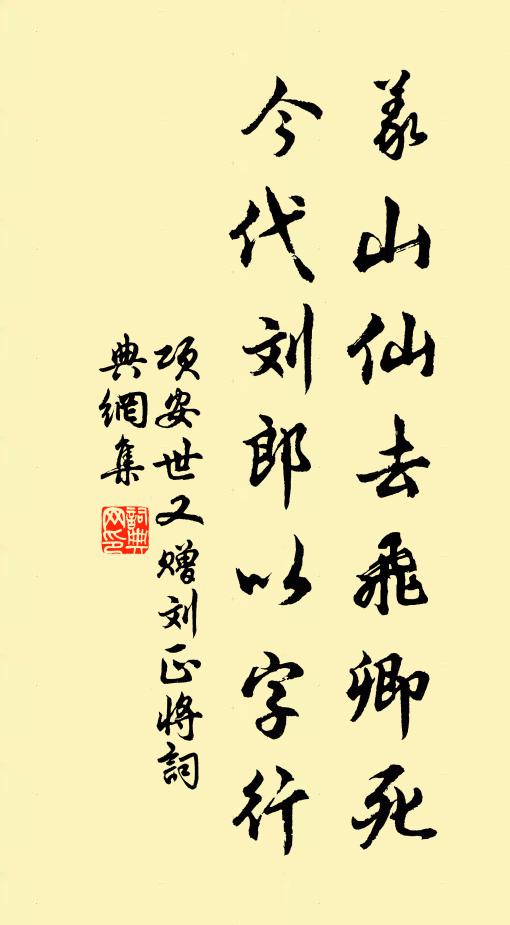 义山仙去飛卿死
今代刘郎以字行
项安世又赠刘正將詞
典網集
詞典网印